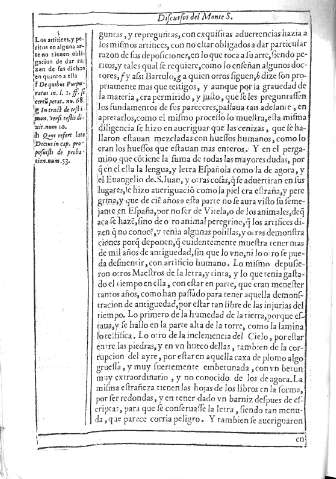 Discursos del Monte S.
Los artifices, y pe-
ritos en algun ar-
te no tienen obli-
gacion de dar ra-
zon de sus dichos
en quanto a ella
f De quibus Purpu-
ratus in l. 1. ff. si
certũ petat. nu. 68.
g In tract. de testi-
mon. versi. testis di-
cit num. 10.
h Quos refert late
Decius in cap. pro-
posuisti de proba-
tion. num. 53.
guntas, y repreguntas, con exquisitas aduertencias hasta a
los mismos artifices, con no estar obligados a dar particular
razon de sus deposiciones, en lo que toca a su arte, siendo pe-
ritos, y tales qual se requiere, como lo enseñan algunos doc-
tores, f y assi Bartolo, g a quien otros siguen, h dize son pro-
priamente mas que testigos, y aunque por la grauedad de
la materia, era permitido, y justo, que se les preguntassen
los fundamentos de sus pareceres, passaua tan adelante, en
apretarlos, como el mismo processo lo muestra, esta misma
diligencia se hizo en aueriguar que las cenizas, que se ha-
llaron estauan mezcladas con huessos humanos, como lo
eran los huessos que estauan mas enteros. Y en el perga-
mino que cõtiene la suma de todas las mayores dudas, por
q̃ en el esta la lengua, y letra Española como la de agora, y
el Euangelio de S. Iuan, y otras cosas, q̃ se aduertiran en sus
lugares, se hizo aueriguaciõ como la piel era estraña, y pere
grina, y que de ciẽ años a esta parte no se aura visto su seme-
jante en España, por no ser de Vitela, o de los animales, de q̃
aca se hazẽ, sino de otro animal peregrino, q̃ los artifices di-
zen q̃ no conocẽ, y tenia algunas polillas, y otras demonstra
ciones porq̃ deponen, q̃ euidentemente muestra tener mas
de mil años de antiguedad, sin que lo vno, ni lo otro se pue-
da desmentir, con artificio humano. Lo mismo depusie-
ron otros Maestros de la letra, y tinta, y lo que tenia gasta-
do el tiempo en ella, con estar en parte, que eran menester
tantos años, como han passado para tener aquella demons-
tracion de antiguedad, por estar tan libre de las injurias del
tiempo. Lo primero de la humedad de la tierra, porque es-
taua, y se hallo en la parte alta de la torre, como la lamina
lo testifica. Lo otro de la inclemencia del Cielo, por estar
entre las piedras, y en vn hueco dellas, tambien de la cor-
rupcion del ayre, por estar en aquella caxa de plomo algo
gruessa, y muy fuertemente embetunada, con vn betun
muy extraordinario, y no conocido de los de agora. La
misma estrañeza tienen las hojas de los libros en la forma,
por ser redondas, y en tener dado vn barniz despues de es-
criptas, para que se conseruasse la letra, siendo tan menu-
da, que parece corria peligro. Y tambien se aueriguaron
co